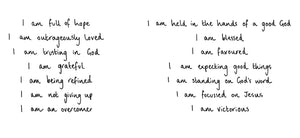 I am full of hope
I am outrageously loved
I am trusting in God
I am grateful
I am being refined
I am not giving up
I am an overcomer
I am held in the hands of a good God
I am blessed
I am favoured
I am expecting good things
I am standing on God's word
I am focussed on Jesus
I am victorious